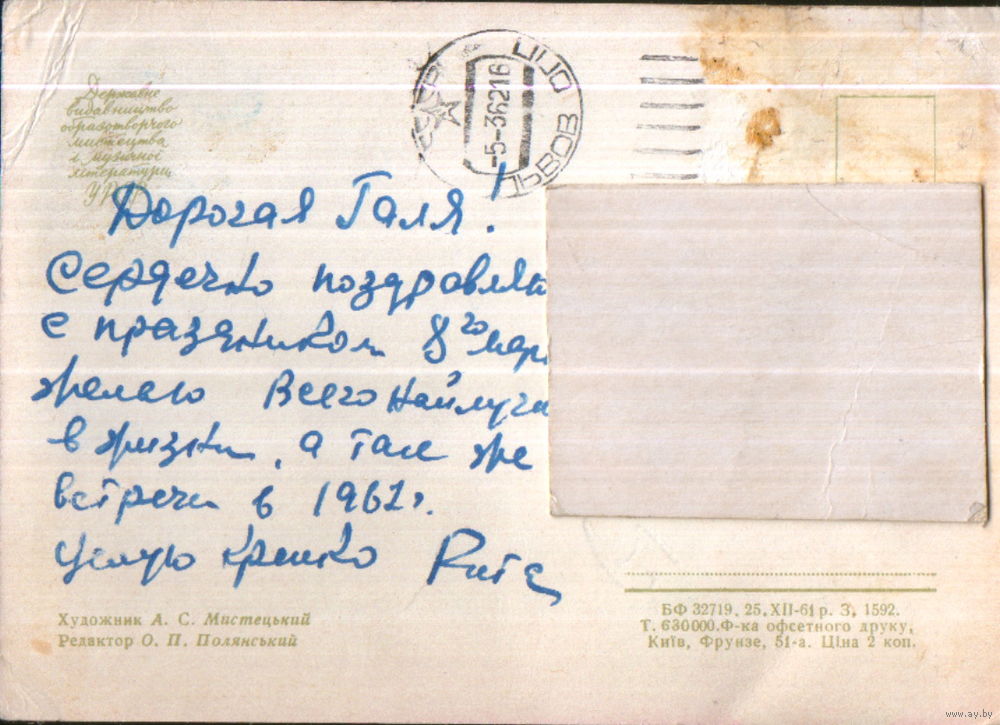 Державне
видавництво
образотворчого
мистецтва
і музичної
літератури
УРСР
СССР
ЦПО
ЛЬВОВ
-5-36216
Дорогая Галя!
Сердечно поздравляю
с праздником 8го мар
желаю всего найлучш
в жизни, а так же
встречи в 1962 г.
Целую крепко Рита
Художник А. С. Мистецький
Редактор О. П. Полянський
БФ 32719. 25.XII-61 р. З. 1592.
Т. 630000. Ф-ка офсетного друку,
Київ, Фрунзе, 51-а. Ціна 2 коп.
www.ay.by